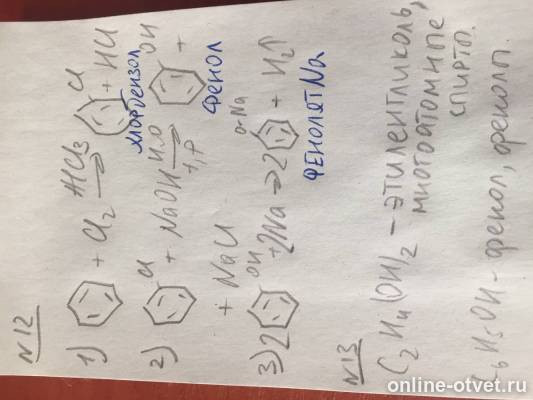 N12
1) + Cl2 AlCl3 → Cl + HCl
хлорбензол
2) Cl + NaOH H2O t,P → OH +
фенол
+ NaCl
3) 2 OH + 2Na → 2 O-Na + H2↑
ФЕНОЛЯТ Na
N13
C2H4(OH)2 - этиленгликоль,
многоатомные
спирты
C6H5OH - фенол, фенолы.
online-otvet.ru